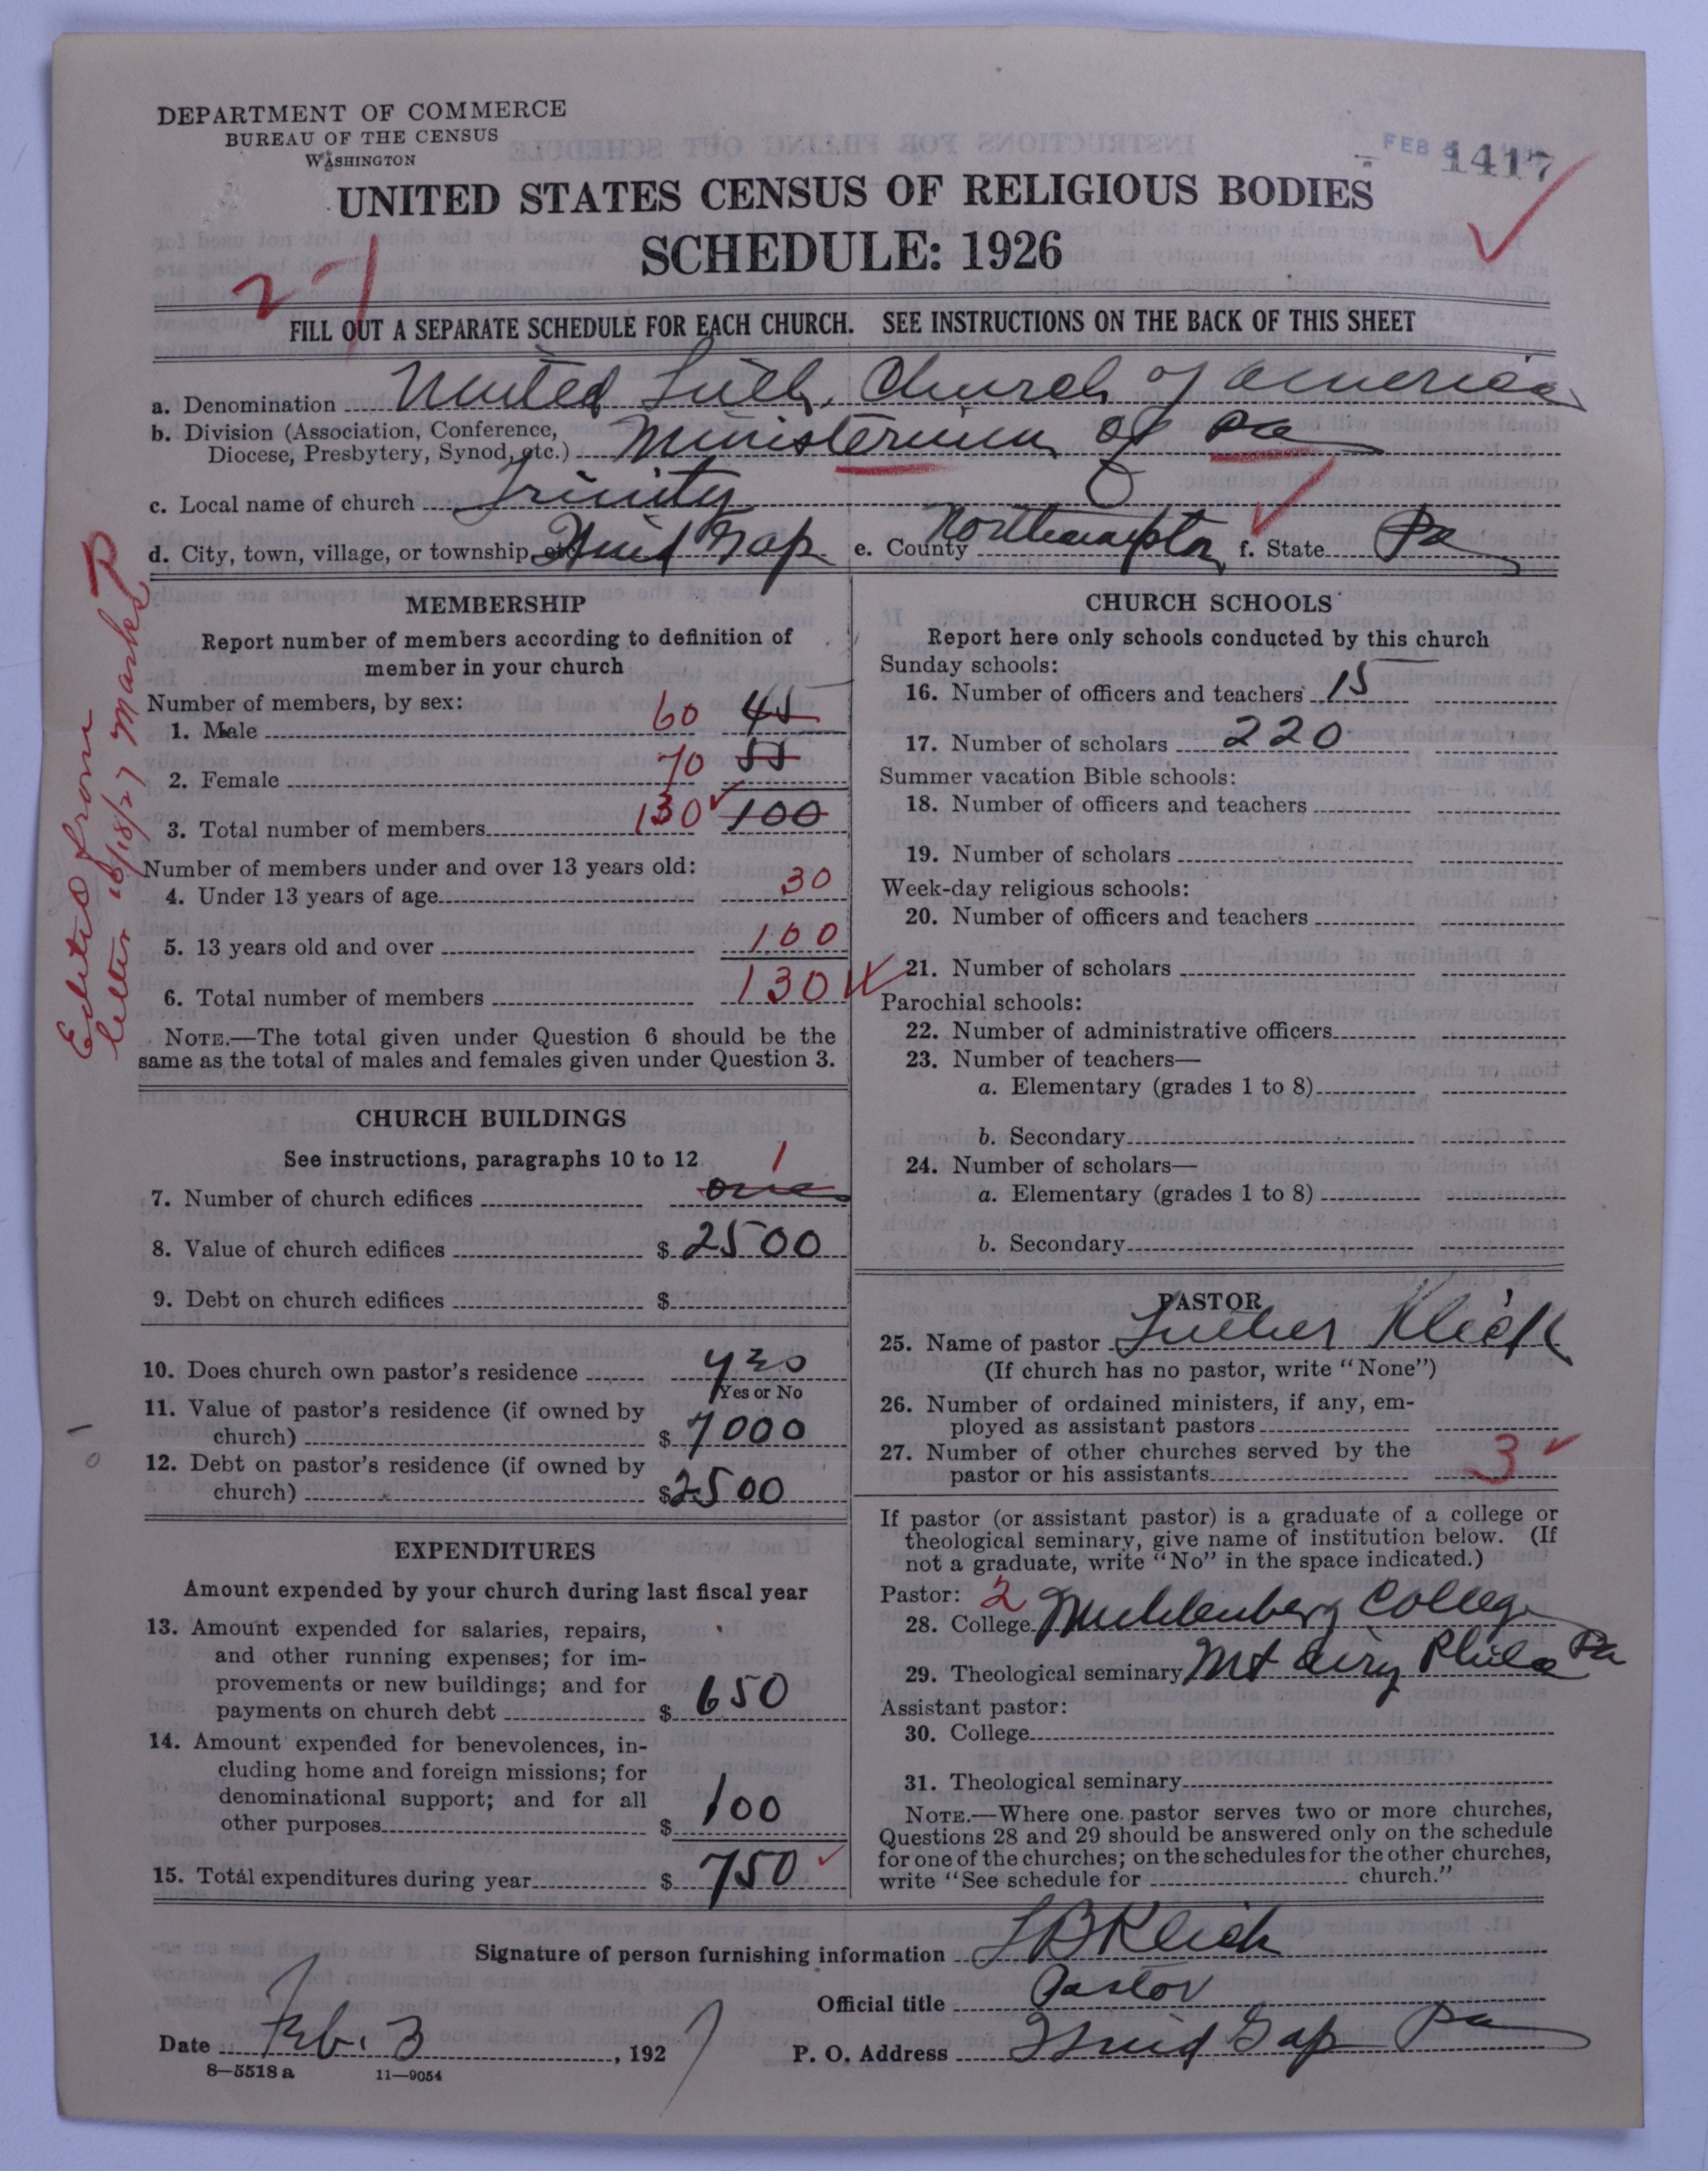 DEPARTMENT OF COMMERCE
BUREAU OF THE CENSUS
WASHINGTON
FEB
1417
UNITED STATES CENSUS OF RELIGIOUS BODIES
SCHEDULE: 1926
27
FILL OUT A SEPARATE SCHEDULE FOR EACH CHURCH. SEE INSTRUCTIONS ON THE BACK OF THIS SHEET
a. Denomination United Luth. Church of America
b. Division (Association, Conference,
Diocese, Presbytery, Synod, etc.) Ministerium of Pa
c. Local name of church Trinity
d. City, town, village, or township, etc. Wind Gap e. County Northampton f. State Pa
Edited from
letter 10/18/27 Marks
MEMBERSHIP
Report number of members according to definition of
member in your church
Number of members, by sex:
1. Male 60 45
2. Female 70 55
3. Total number of members 130 100
Number of members under and over 13 years old:
4. Under 13 years of age 30
5. 13 years old and over 100
6. Total number of members 130
NOTE.—The total given under Question 6 should be the
same as the total of males and females given under Question 3.
CHURCH BUILDINGS
See instructions, paragraphs 10 to 12
1
7. Number of church edifices one
8. Value of church edifices $ 2500
9. Debt on church edifices $
10. Does church own pastor's residence yes
Yes or No
11. Value of pastor's residence (if owned by
church) $ 7000
12. Debt on pastor's residence (if owned by
church) $ 2500
EXPENDITURES
Amount expended by your church during last fiscal year
13. Amount expended for salaries, repairs,
and other running expenses; for im-
provements or new buildings; and for
payments on church debt $ 650
14. Amount expended for benevolences, in-
cluding home and foreign missions; for
denominational support; and for all
other purposes $ 100
15. Total expenditures during year $ 750
CHURCH SCHOOLS
Report here only schools conducted by this church
Sunday schools:
16. Number of officers and teachers 15
17. Number of scholars 220
Summer vacation Bible schools:
18. Number of officers and teachers
19. Number of scholars
Week-day religious schools:
20. Number of officers and teachers
21. Number of scholars
Parochial schools:
22. Number of administrative officers
23. Number of teachers—
a. Elementary (grades 1 to 8)
b. Secondary
24. Number of scholars—
a. Elementary (grades 1 to 8)
b. Secondary
PASTOR
25. Name of pastor Luther Klick
(If church has no pastor, write "None")
26. Number of ordained ministers, if any, em-
ployed as assistant pastors
27. Number of other churches served by the
pastor or his assistants 3
If pastor (or assistant pastor) is a graduate of a college or
theological seminary, give name of institution below. (If
not a graduate, write "No" in the space indicated.)
Pastor: 2
28. College Muhlenberg College
29. Theological seminary Mt Airy Phila Pa
Assistant pastor:
30. College
31. Theological seminary
NOTE.—Where one pastor serves two or more churches,
Questions 28 and 29 should be answered only on the schedule
for one of the churches; on the schedules for the other churches,
write "See schedule for church."
Signature of person furnishing information LB Klick
Official title Pastor
Date Feb. 3, 1927 P. O. Address Wind Gap Pa
8—5518 a 11—9054